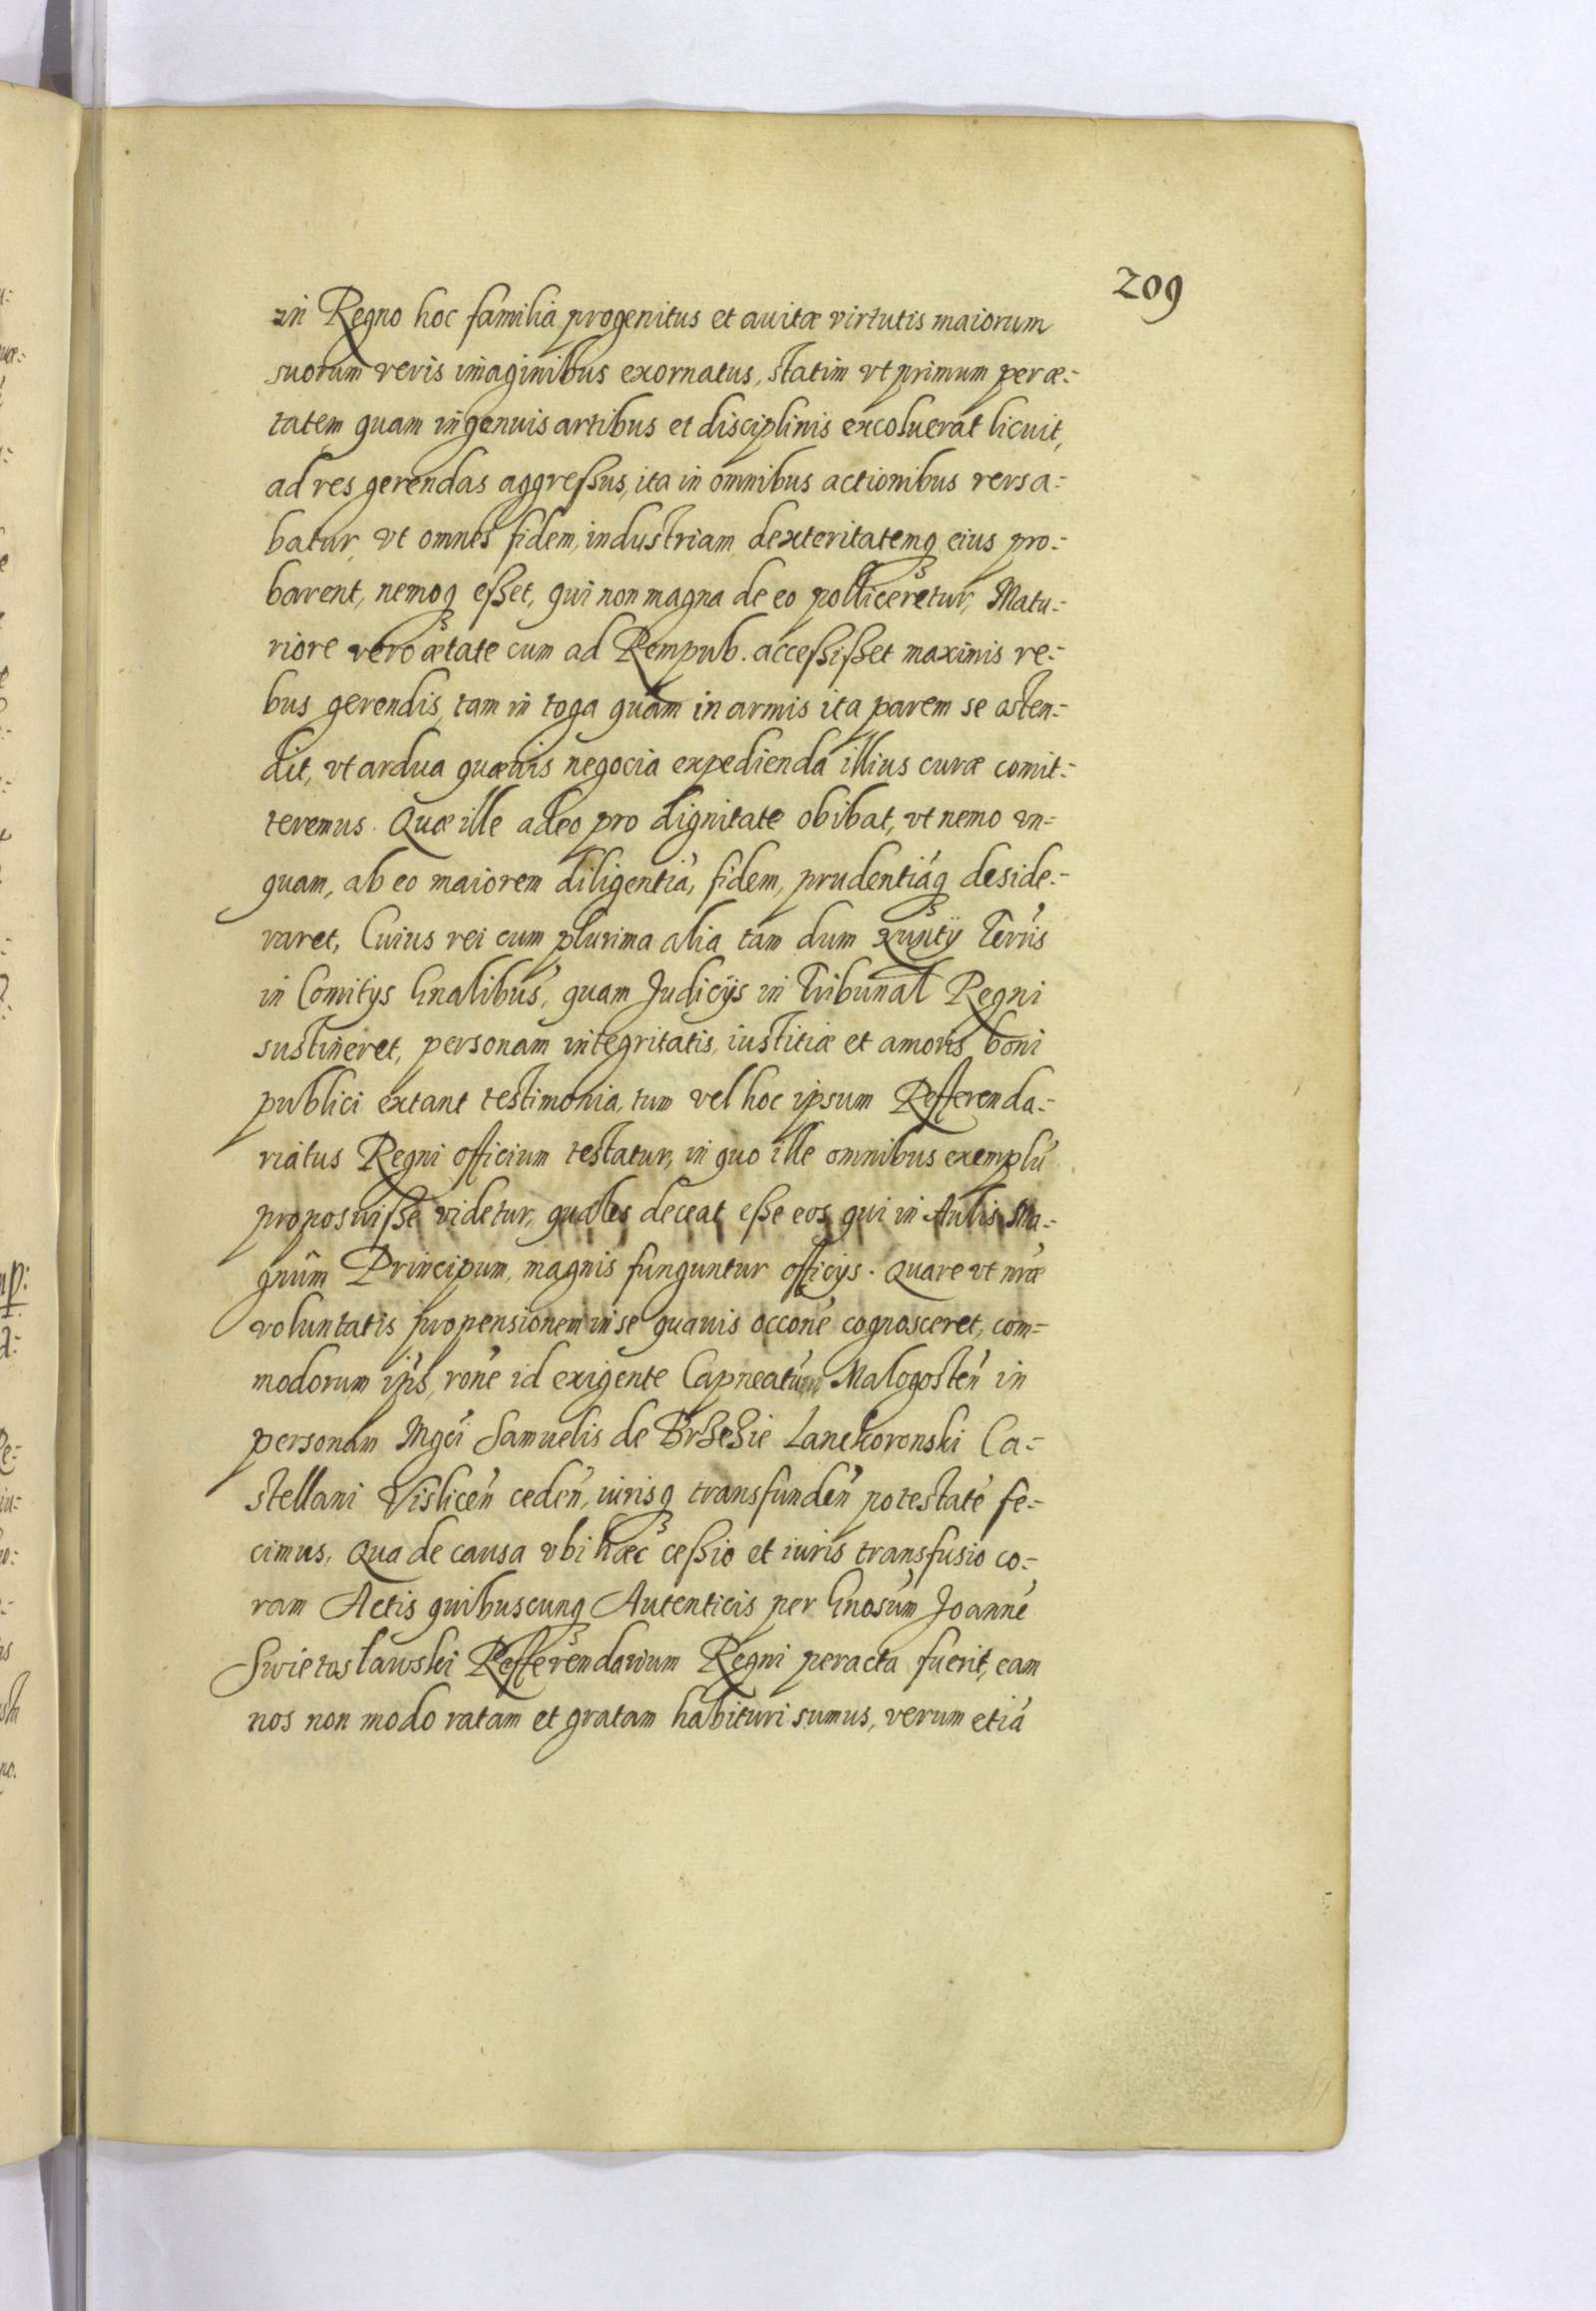 209
in Regno hoc familia progenitus et auitæ virtutis maiorum
suorum veris imaginibus exornatus, statim vt primum per æ:-
tatem quam ingenuis artibus et disciplinis excoluerat licuit,
ad res gerendas aggressus, ita in omnibus actionibus versa:-
batur, vt omnes fidem, industriam dexteritatemq eius pro:-
barent, nemoq esset, qui non magna de eo polliceretur, Matu:-
riore vero ætate cum ad Rempub. accessisset maximis re:-
bus gerendis, tam in toga quam in armis ita parem se osten:-
dit, vt ardua quæuis negocia expedienda illius curæ comit:-
teremus. Quæ ille adeo pro dignitate obibat, vt nemo vn:-
quam, ab eo maiorem diligentiá, fidem, prudentiáq deside:-
raret, Cuius rei cum plurima alia tam dum Nuntij Terris
in Comitijs Gnalibus, quam Judicijs in Tribunal Regni
sustineret, personam integritatis, iustitiæ et amoris boni
publici extant testimonia, tum vel hoc ipsum Refferenda:-
riatus Regni officium testatur, in quo ille omnibus exemplú
proposuisse videtur, quales deceat esse eos, qui in Aulis Ma:-
gnûm Principum, magnis funguntur officijs. Quare vt nræ
voluntatis propensionem in se quauis occone cognosceret, com:-
modorum ipis, rone id exigente Capneatum Malogosten in
personam Mgci Samuelis de Brzezie Lanckoronski Ca:-
stellani Vislicen ceden, iurisq transfunden potestaté fe:-
cimus, Qua de causa vbi hæc cessio et iuris transfusio co:-
ram Actis quibuscunq Autenticis per Gnosum Joanné
Swietoslawski Refferendarium Regni peracta fuerit, eam
nos non modo ratam et gratam habituri sumus, verum etiá